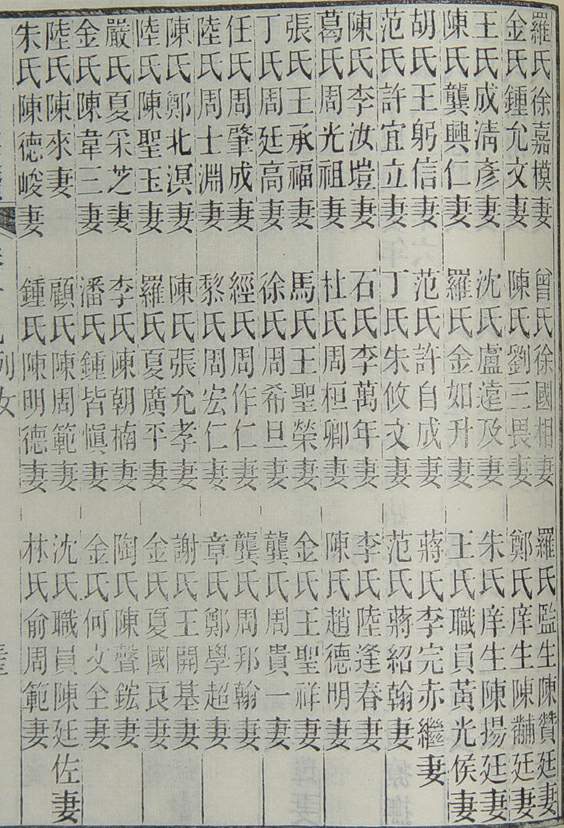 羅氏徐嘉模妻　曾氏徐國相妻　羅氏監生陳贊廷妻
金氏鍾允文妻　陳氏劉三畏妻　鄭氏庠生陳黼廷妻
王氏成淸彥妻　沈氏盧遠及妻　朱氏庠生陳揚廷妻
陳氏龔興仁妻　羅氏金如升妻　王氏職員黃光俟妻
胡氏王躬信妻　范氏許自成妻　蔣氏李完赤繼妻
范氏許宜立妻　丁氏朱攸文妻　范氏蔣紹翰妻
陳氏李汝塏妻　石氏李萬年妻　李氏陸逢春妻
葛氏周光祖妻　杜氏周桓卿妻　陳氏趙德明妻
張氏王承福妻　馬氏王聖榮妻　金氏王聖祥妻
丁氏周廷高妻　徐氏周希旦妻　龔氏周貴一妻
任氏周肇成妻　經氏周作仁妻　龔氏周邦翰妻
陸氏周士淵妻　黎氏周宏仁妻　章氏鄭學超妻
陳氏鄭北溟妻　陳氏張允孝妻　謝氏王開基妻
陸氏陳聖玉妻　羅氏夏廣平妻　金氏夏國良妻
嚴氏夏采芝妻　李氏陳朝楠妻　陶氏陳聲鋐妻
金氏陳韋三妻　潘氏鍾皆愼妻　金氏何文全妻
陸氏陳來妻　顧氏陳周範妻　沈氏職員陳廷佐妻
朱氏陳德峻妻　鍾氏陳明德妻　林氏俞周範妻
列女